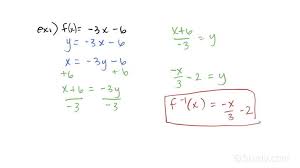 ex1) f(x) = -3x - 6
y = -3x - 6
x = -3y - 6
+6 +6
x+6 = -3y
-3 -3
x+6 = y
-3
-x - 2 = y
3
f⁻¹(x) = -x - 2
3
Study.com